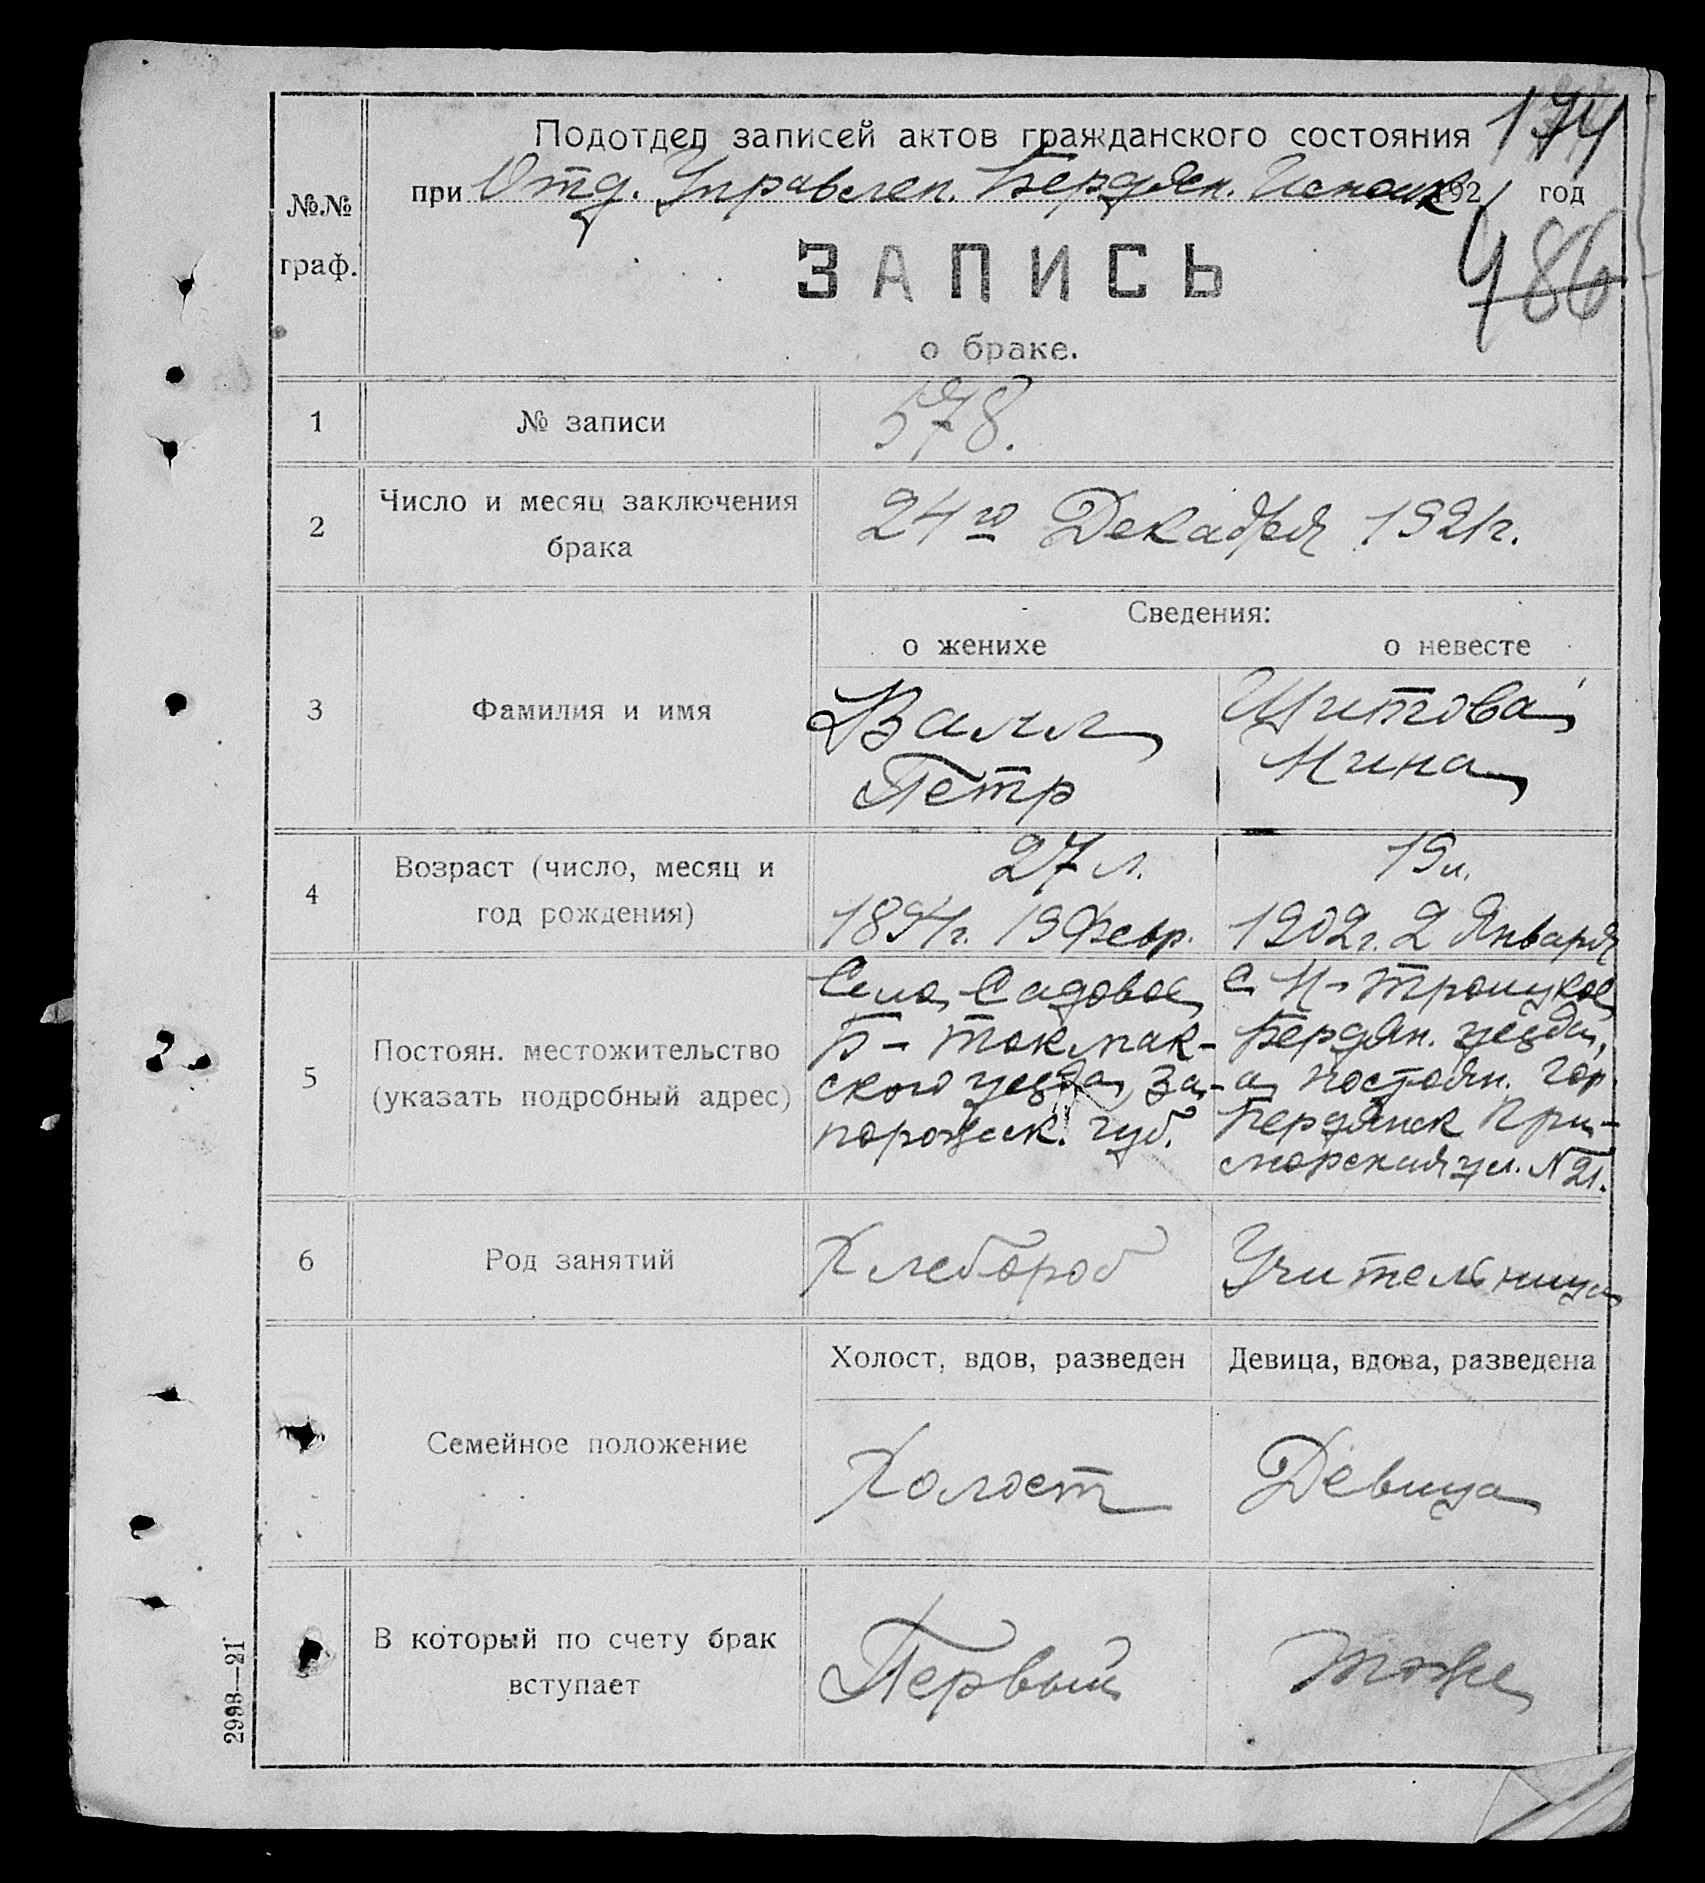 174
Подотдел записей актов гражданского состояния
при Отд. Управлен. Бердян. Исполк 1921 год
№.№
граф.
ЗАПИСЬ
486
о браке.
1 № записи 578.
2 Число и месяц заключения
брака
24го Декабря 1921г.
Сведения:
о женихе о невесте
3 Фамилия и имя
Валл Щитова
Петр Нина
4 Возраст (число, месяц и
год рождения)
27 л. 19 л.
1894г. 19 Февр. 1902г. 2 Января
5 Постоян. местожительство
(указать подробный адрес)
Село Садовое
Б-Токмак-
ского уезда, За-
порожск. губ.
с. Н-Троицкое
Бердян. уезда,
а постоян. гор.
Бердянск При-
морская ул. № 21.
6 Род занятий
Хлебороб Учительница
Холост, вдов, разведен Девица, вдова, разведена
Семейное положение
Холост Девица
В который по счету брак
вступает
Первый тоже
2998—21